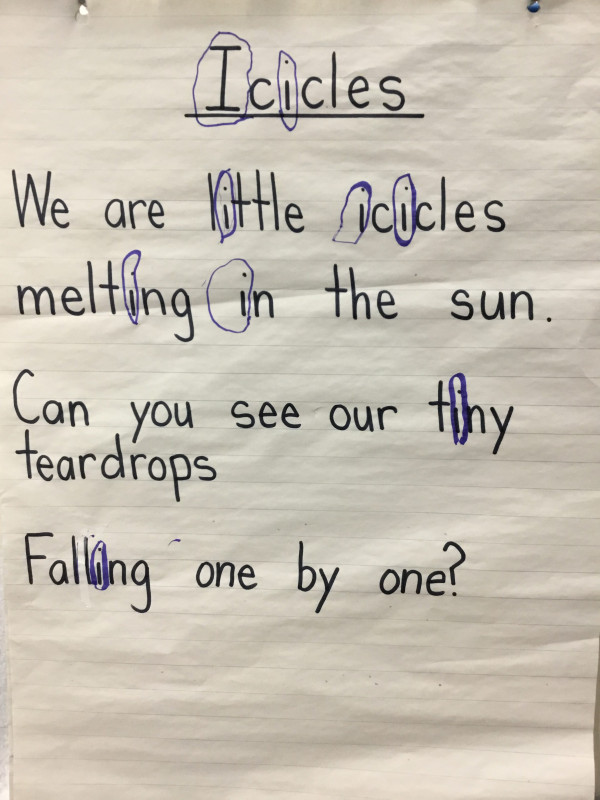 Icicles
We are little icicles
melting in the sun.
Can you see our tiny
teardrops
Falling one by one?